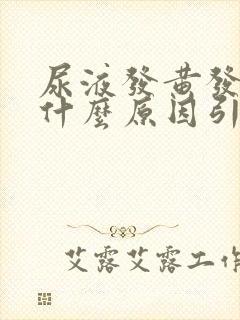 尿液發黃發
什麼原因引
艾露艾露工作